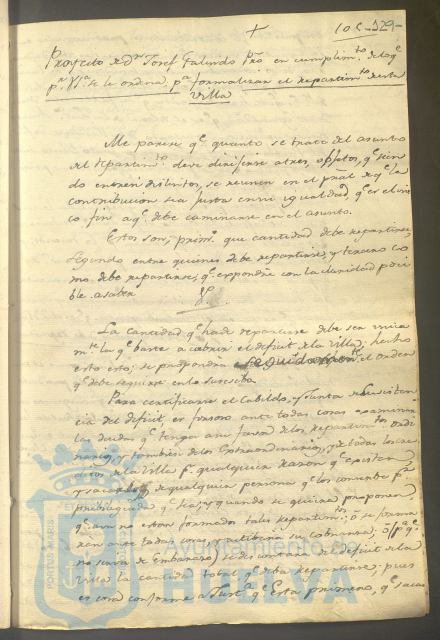 +
Proyecto de Dn Josef Galindo Pro en cumplimto de lo qe
pr VSa se le ordena, pa formalizar el repartimto de esta
villa
Me parece qe quanto se trate del asunto
del repartimto deve dirijirse a tres objetos, qe sien
do entre si distintos, se reunen en el pral de qe la
contribucion sea justa en su igualdad, qe es el uni
co fin a qe debe caminarse en el asunto.
Estos son; primo que cantidad debe repartirse
segundo entre quienes debe repartirse, y tercero co
mo debe repartirse, qe expondre con la claridad posi
ble a saber
1o
La cantidad qe ha de repartirse debe ser unica
mte la qe baste a cubrir el deficit de la villa; hecho
esto se el orden
qe debe seguirse en lo sucesibo.
Para certificarse el Cabildo, y Junta de
del deficit, es forzoso ante todas cosas examinar
las deudas qe tenga a su favor de los repartimtos ordi
narios, y tambien de los extraordinarios, y de todos los cre
ditos de la villa pr qualquiera razon qe existan
y sacarlos de qualquiera persona qe los contrahe pr
privilegiado qe sea, y quando se quiera proponer
qe aun no estan formados tales repartimtos, o se forma
ran ante todas cosas, y se cobrança, (pa qe
no sirva de embarazo) se descontara del deficit de la
villa la cantidad total qe deba repartirse; pues
es cosa conforme a justa qe esta primero, qe sacar
Ayuntamiento de
HUELVA
PORTUS MARIS